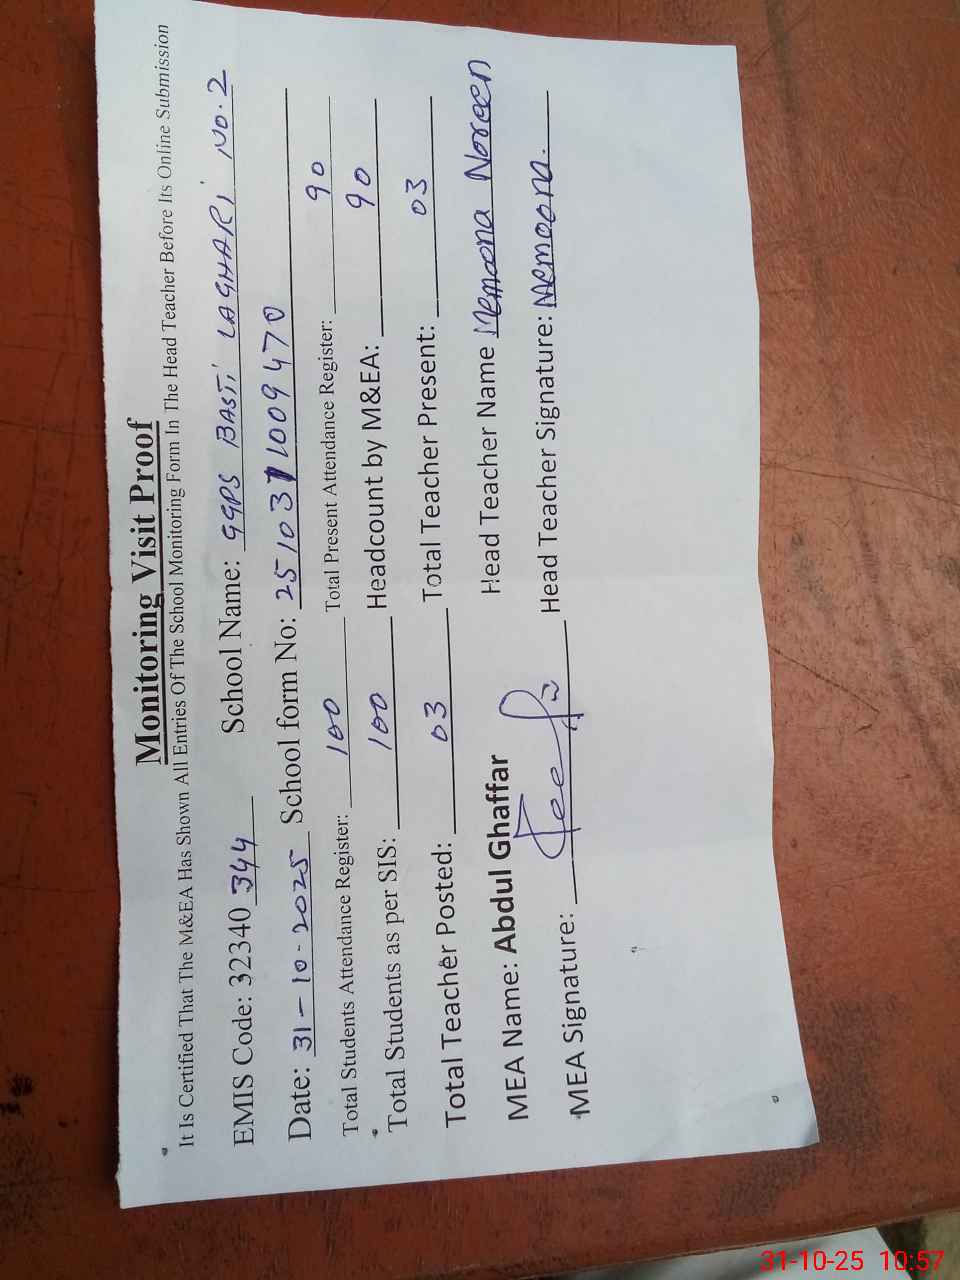 Monitoring Visit Proof
It Is Certified That The M&EA Has Shown All Entries Of The School Monitoring Form In The Head Teacher Before Its Online Submission
EMIS Code: 32340 344 School Name: GGPS BASTI LAGHARI NO.2
Date: 31-10-2025 School form No: 251031009470
Total Students Attendance Register: 100 Total Present Attendance Register: 90
Total Students as per SIS: 100 Headcount by M&EA: 90
Total Teacher Posted: 03 Total Teacher Present: 03
MEA Name: Abdul Ghaffar Head Teacher Name Memoona Noreen
MEA Signature: Head Teacher Signature: Memoona.
31-10-25 10:57